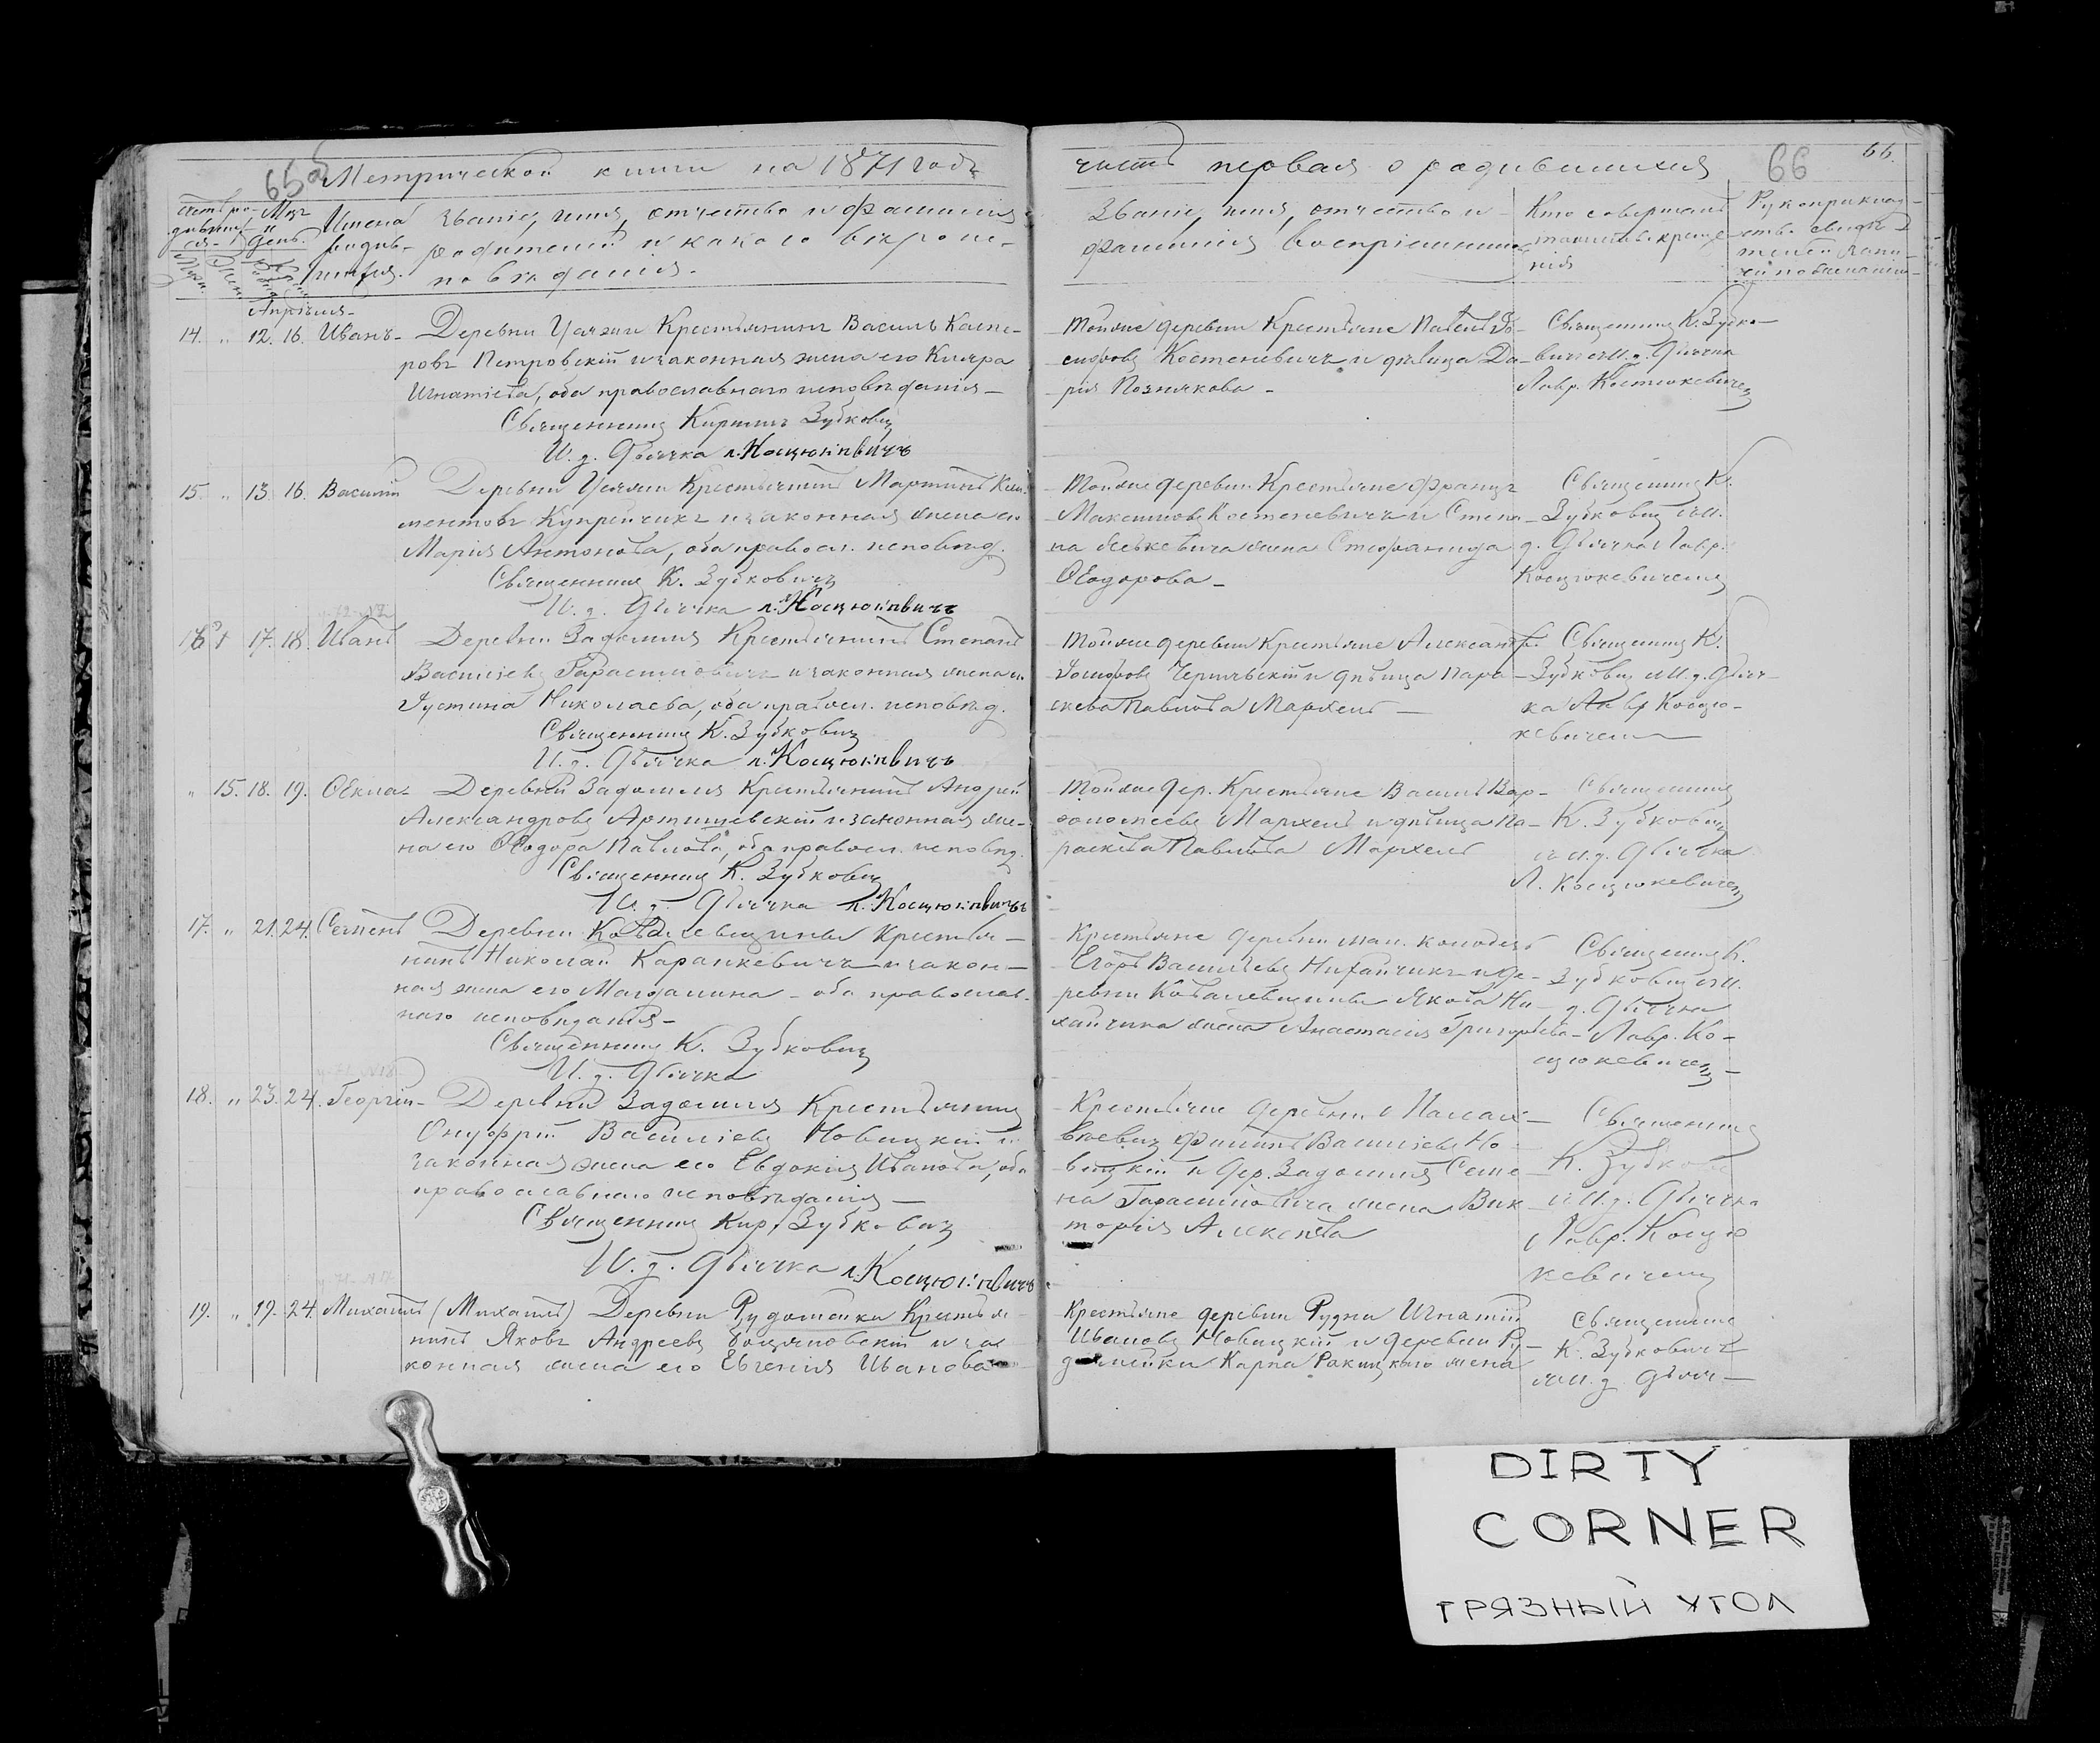 65об
Метрической книги на 1871 годъ
Имена
родив-
шихся.
Званіе, имя, отчество и фамилія
родителей и какого вѣроис-
повѣданія.
Апрѣля
14. " 12. 16. Иванъ Деревни Крестьянинъ Василь Каспе-
ровъ Петровскій и законная жена его
Игнатіева, оба православнаго исповѣданія
Священникъ Кириллъ Зубковичъ
И. д. дьячка Л. Косцюкевичъ
15. " 13. 16. Василій Деревни Крестьянинъ Мартинъ Кли-
ментовъ Купрейчикъ и законная жена его
Марія Антонова, оба правосл. исповѣд.
Священникъ К. Зубковичъ
И. д. дьячка Л. Косцюкевичъ
16 17. 18. Иванъ Деревни Задомля Крестьянинъ Степанъ
Василіевъ Гарасимовичъ и законная жена его
Іустина Николаева, оба правосл. исповѣд.
Священникъ К. Зубковичъ
И. д. дьячка Л. Косцюкевичъ
" 15. 18. 19. Ѳекла Деревни Задомля Крестьянинъ Андрей
Александровъ Артишевскій и законная же-
на его Ѳеодора Павлова, оба правосл. исповѣд.
Священникъ К. Зубковичъ
И. д. дьячка Л. Косцюкевичъ
17. " 21. 24. Деревни Ковалевщины Крестья-
нинъ Николай Каранкевичъ и закон-
ная жена его Магдалина оба православ-
наго исповѣданія
Священникъ К. Зубковичъ
И. д. дьячка
18. " 23. 24. Георгій Деревни Задомля Крестьянинъ
Онуфрій Василіевъ Новицкій и
законная жена его Евдокія Иванова, оба
православнаго исповѣданія
Священникъ Кир. Зубковичъ
И. д. дьячка Л. Косцюкевичъ
19. " 19. 24. Михаилъ (Михаилъ) Деревни Рудомейки Крестья-
нинъ Яковъ Андреевъ и за
конная жена его Евгенія Иванова
часть первая о родившихся
66
66.
Званіе, имя, отчество и
фамилія воспріемниковъ
Кто совершалъ
таинство креще-
нія
Рукоприклад-
ство свидѣ-
телей
Тойже деревни Крестьяне Павелъ
Костеневичъ и дѣвица Да-
рія Познякова
Священникъ К. Зубко-
вичъ съ И. д. дьячка
Лавр. Костюкевичемъ
Тойже деревни Крестьяне Францъ
Максимовъ Костеневичъ и Степа-
на жена Стефанида
Ѳеодорова
Священникъ К.
Зубковичъ съ И.
д. дьячка Лавр.
Косцюкевичемъ
Тойже деревни Крестьяне Александръ
Чернявскій и дѣвица Пара-
скева Павлова Мархель
Священникъ К.
Зубковичъ съ И. д. дьяч-
ка Лавр Косцю-
кевичемъ
Тойже дер. Крестьяне Василь Вар-
ѳоломеевъ Мархель и дѣвица Па-
раскева Павлова Мархель
Священникъ
К. Зубковичъ
съ И. д. дьячка
Л. Косцюкевичемъ
Крестьяне деревни
Егоръ Василіевъ и де-
ревни Ковалевщины Якова
жена Анастасія Григорьева
Священникъ К.
Зубковичъ съ И.
д. дьячка
Лавр. Ко-
сцюкевичемъ
Крестьяне деревни
Филипъ Василіевъ Но-
вицкій и дер. Задомля Семе-
на Гарасимовича жена Вик-
торія Алексѣева
Священникъ
К. Зубкович
съ И. д. дьячка
Лавр. Косцю
кевичемъ
Крестьяне деревни Рудни Игнатій
Ивановъ Новицкій и деревни Ру-
домейки Карпа Ракицкаго жена
Священникъ
К. Зубковичъ
съ И. д. дьяч-
DIRTY
CORNER
ГРЯЗНЫЙ УГОЛ